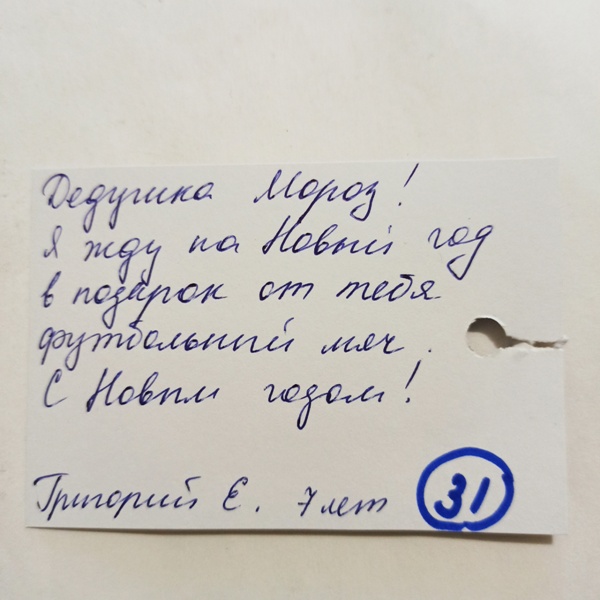 Дедушка Мороз!
Я жду на Новый год
в подарок от тебя
футбольный мяч.
С Новым годом!
Григорий Е. 7 лет
31